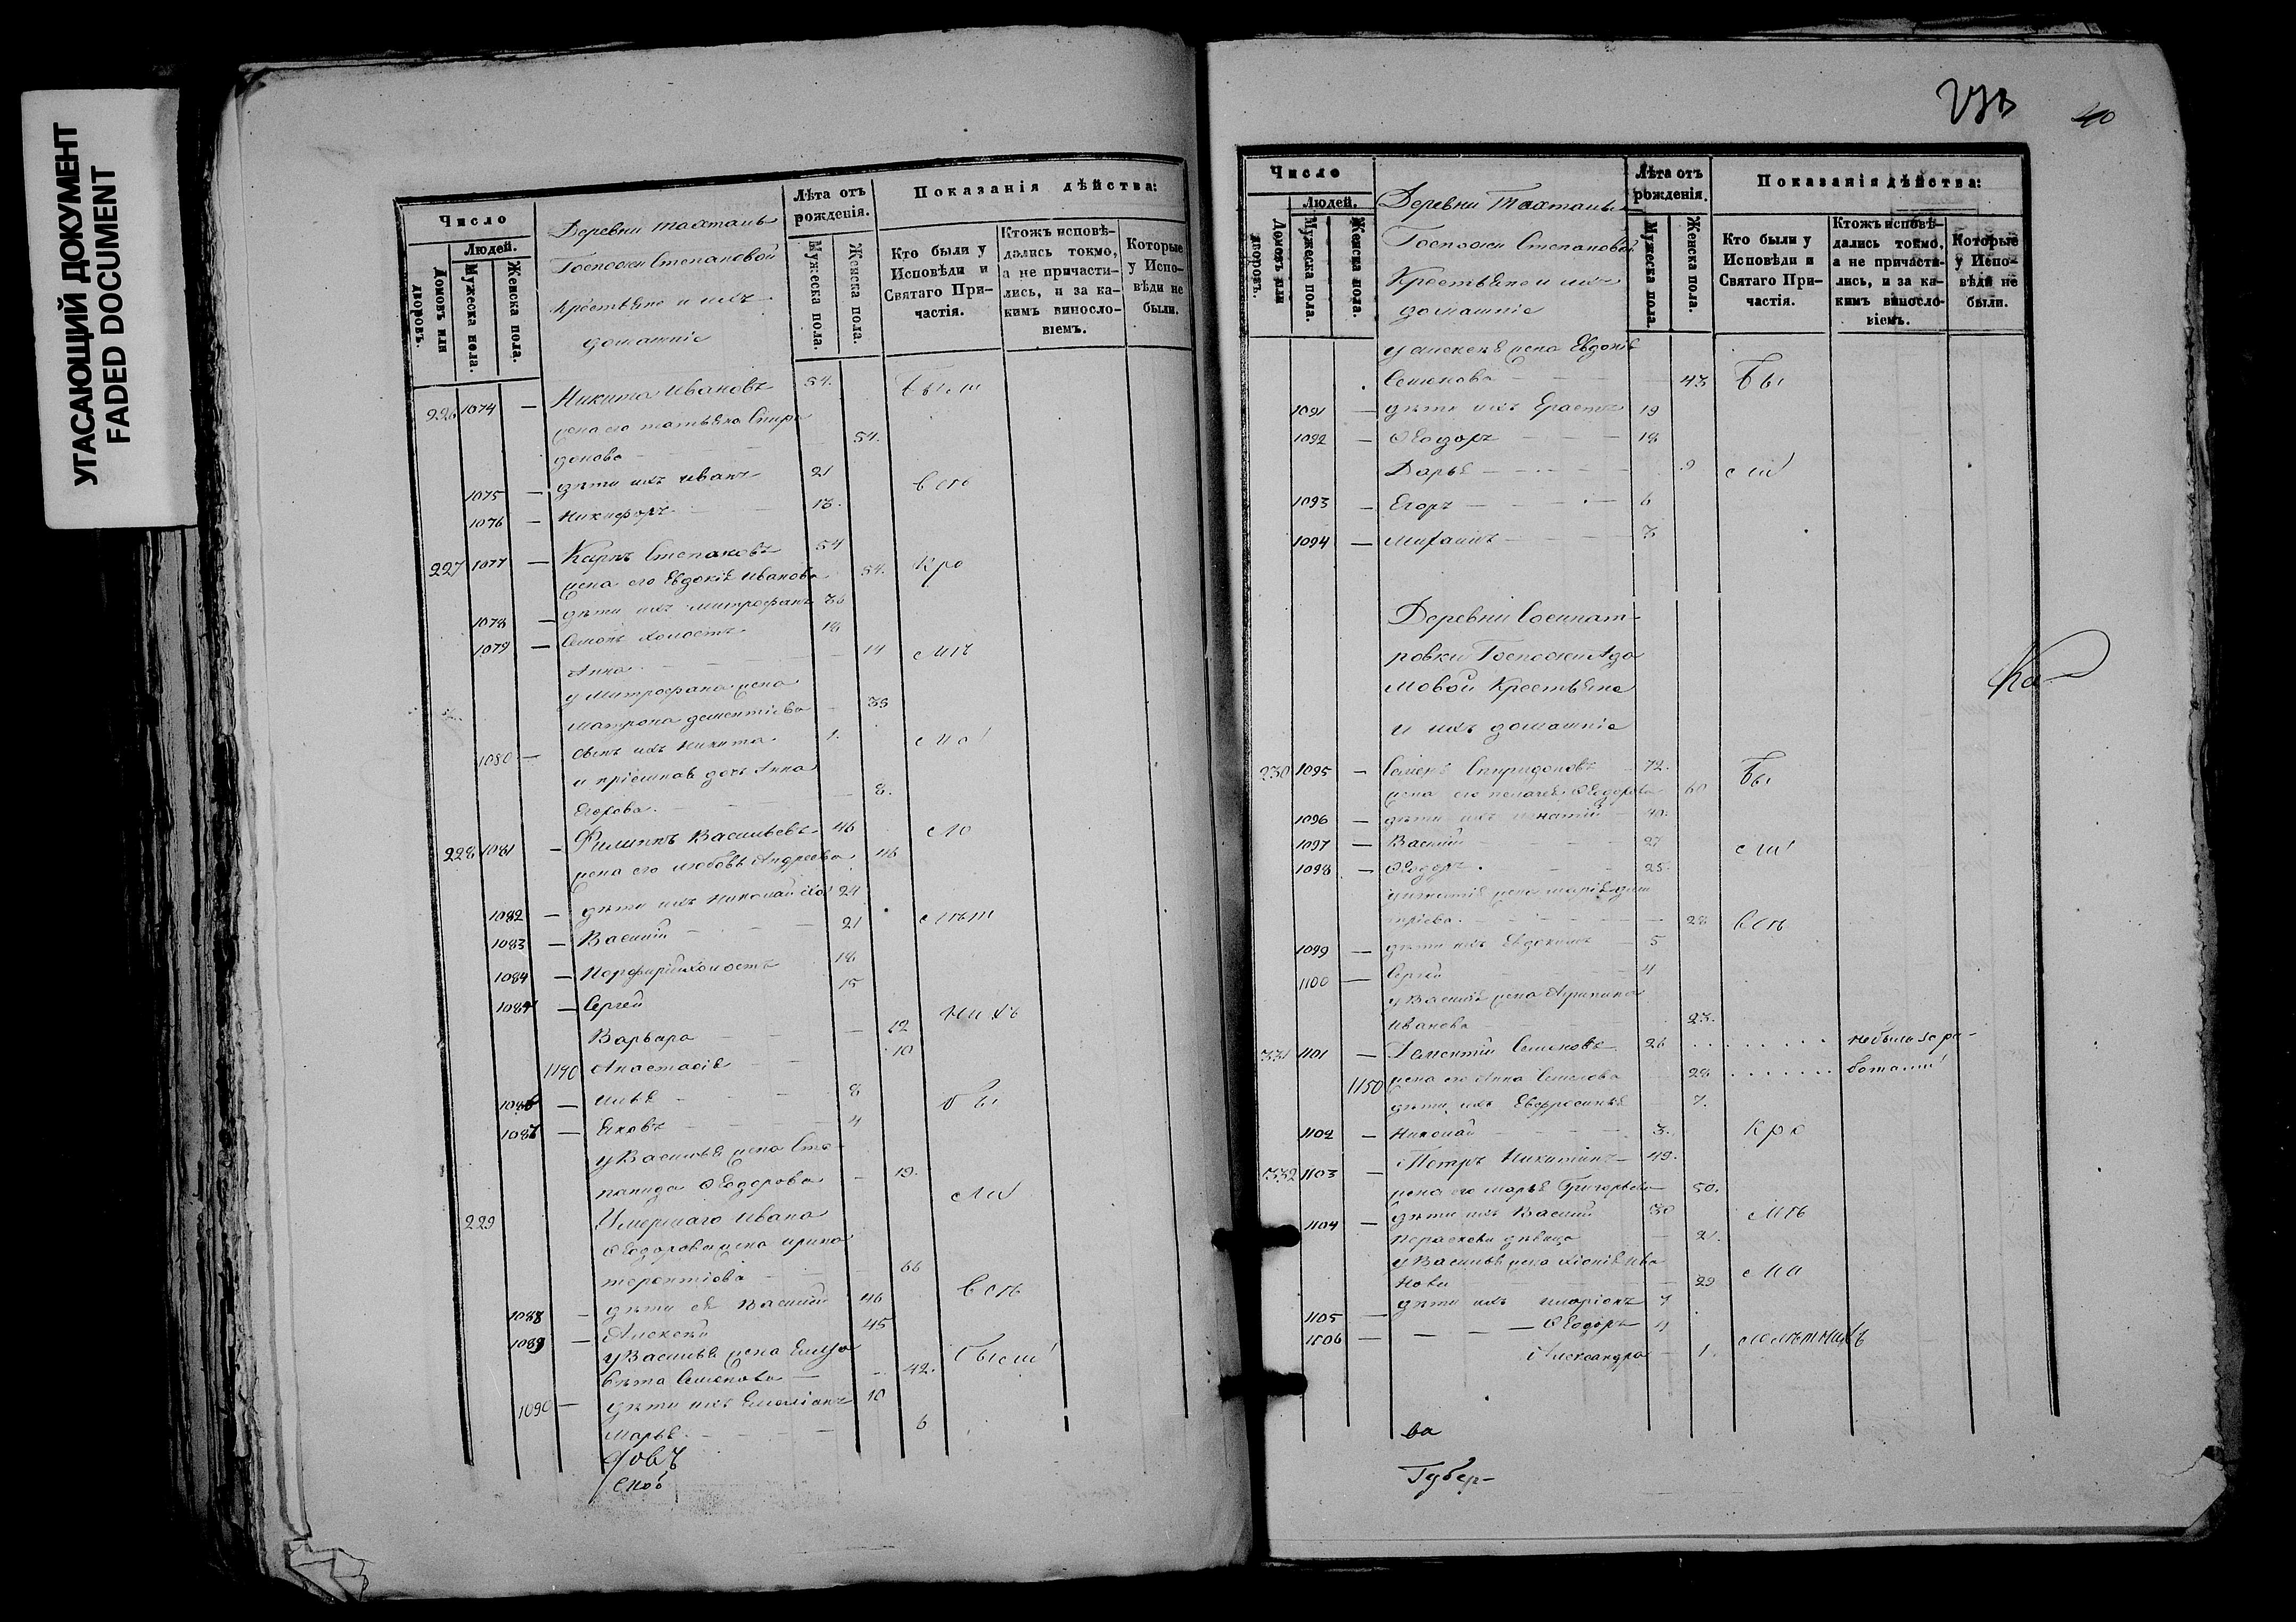 УГАСАЮЩИЙ ДОКУМЕНТ
FADED DOCUMENT
Число
Людей.
Домовъ или дворовъ.
Мужеска пола.
Женска пола.
Деревни Тахталы
Госпожи Степановой
Крестьяне и ихъ
домашніе
Лѣта отъ рожденія.
Мужеска пола.
Женска пола.
Показанія дѣйства:
Кто были у Исповѣди и Святаго Причастія.
Ктожъ исповѣдались токмо, а не причастились, и за какимъ винословіемъ.
Которые у Исповѣди не были.
226 1074 — Никита Ивановъ 54. Были
жена его Татьяна Спири
донова 54.
1075 — дѣти ихъ Иванъ 21
1076 — Никифоръ 13.
227 1077 — Карпъ Степановъ 54
жена его Евдокія Иванова 54.
1078 — дѣти ихъ Митрофанъ
1079 — Семенъ холостъ 18
Анна 14
у Митрофана жена
Матрона Дементіева 33
1080 — сынъ ихъ Никита 1.
и пріемная дочь Анна
Егорова. 8.
228 1081 — Филиппъ Васильевъ 46
жена его Любовь Андреева 48
1082 — дѣти ихъ Николай хол 24
1083 — Василій 21
1084 — Порфирій холостъ 18
Сергей 15
Варвара 12
1190 Анастасія 10
1086 — Илья 8
1087 — Яковъ 4
у Василья жена Сте
панида Ѳеодорова 19.
229 Умершаго Ивана
Ѳеодорова жена Ирина
Терентіева 66
1088 — дѣти ея Василій 46
1089 — Алексѣй 45
у Василья жена Елиза
вѣта Семенова 42.
1090 — дѣти ихъ Емеліанъ 10
Марья 6
273
40
Число
Людей.
Домовъ или дворовъ.
Мужеска пола.
Женска пола.
Деревни Тахталы
Госпожи Степановой
Крестьяне и ихъ
домашніе
Лѣта отъ рожденія.
Мужеска пола.
Женска пола.
Показанія дѣйства:
Кто были у Исповѣди и Святаго Причастія.
Ктожъ исповѣдались токмо, а не причастились, и за какимъ винословіемъ.
Которые у Исповѣди не были.
у Алексѣя жена Евдокія
Семенова 43 Бы
1091 — дѣти ихъ Ерастъ 19
1092 — Ѳеодоръ 18
Дарья 9
1093 — Егоръ 6
1094 — Михаилъ 3
Деревни
Госпожи Ада
мовой Крестьяне
и ихъ домашніе
Ка
230 1095 — Семенъ Спиридоновъ 72. Бы
жена его Пелагея Ѳеодорова 60
1096 — дѣти ихъ Игнатій 40.
1097 — Василій 27
1098 — Ѳеодоръ 25.
у Игнатія жена Марія Дми
тріева. 28
1099 — дѣти ихъ Евдокимъ 5
1100 — Сергей 4
у Василія жена Агрипина
Иванова 23.
331 1101 — Дементій Семеновъ 26 не были за ра-
1150 жена его Анна 28 ботами
дѣти ихъ Евфросинья 7.
1102 — Николай 3.
332 1103 — Петръ Никитинъ 49.
жена его Марья Григорьева 50.
1104 — дѣти ихъ Василій 30
Параскева дѣвица 21.
у Василья жена Ива
нова 29
1105 — дѣти ихъ Иларіонъ 7
1106 — Ѳеодоръ 4
Александра 1.
ва
Губер-